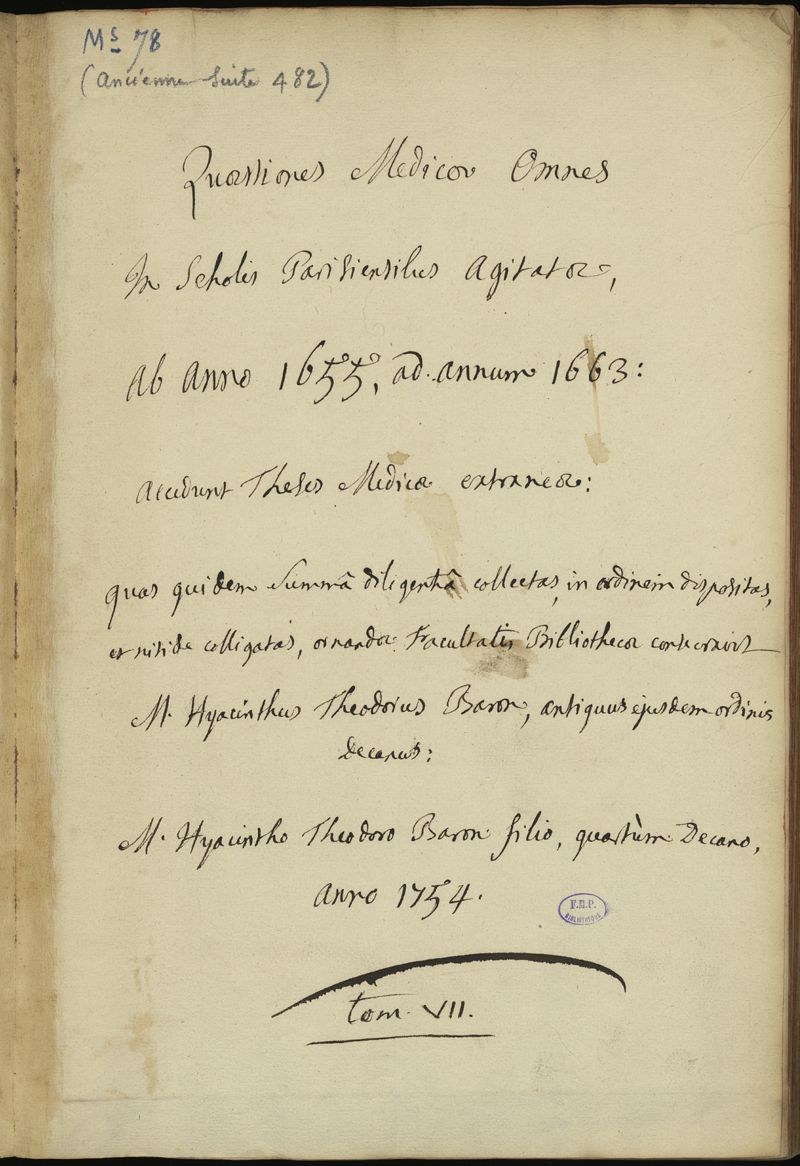 Ms 78
(Ancienne Suite 482)
Quæstiones Medicæ Omnes
In Scholis Parisiensibus Agitatæ,
Ab Anno 1655, ad annum 1663:
Accedunt Theses Medicæ extraneæ:
quas quidem summâ diligentiâ collectas, in ordinem dispositas,
et nitide colligatas, ornandæ Facultatis Bibliothecæ
M. Hyacinthus Theodorus Baron, antiquus ejusdem ordinis
Decanus:
M. Hyacintho Theodoro Baron filio, quartùm Decano,
Anno 1754.
F.M.P.
BIBLIOTHÈQUE
tom. VII.